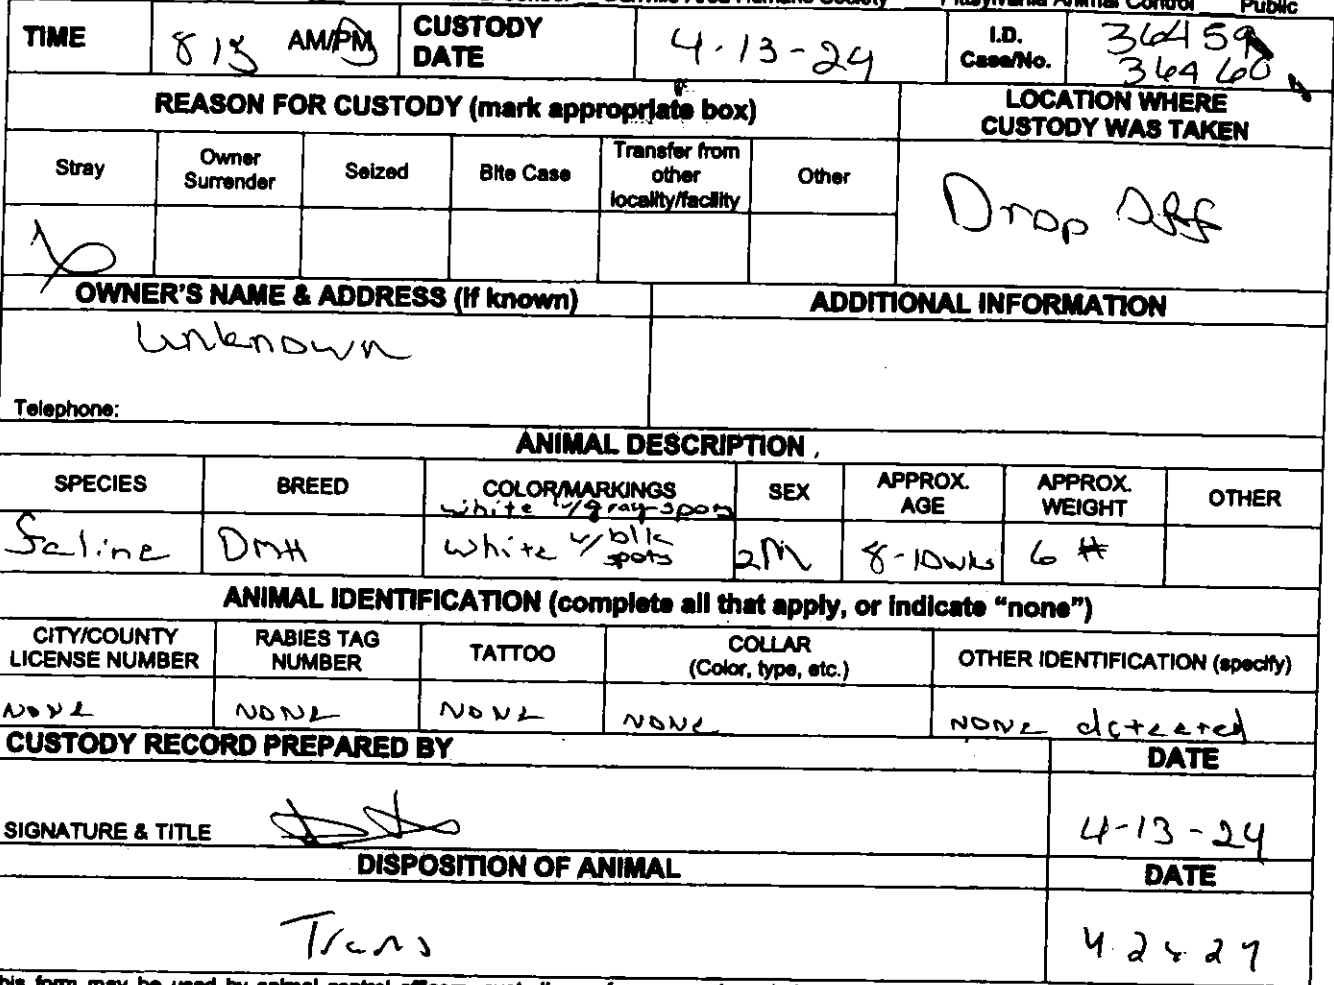 Danville Area Humane Society Pittsylvania Animal Control Public
TIME 8 15 AM/PM CUSTODY DATE 4-13-24 I.D. Case/No. 36459
36460
REASON FOR CUSTODY (mark appropriate box) LOCATION WHERE CUSTODY WAS TAKEN
Stray Owner Surrender Seized Bite Case Transfer from other locality/facility Other
Drop Off
OWNER'S NAME & ADDRESS (if known) ADDITIONAL INFORMATION
Unknown
Telephone:
ANIMAL DESCRIPTION
SPECIES BREED COLOR/MARKINGS SEX APPROX. AGE APPROX. WEIGHT OTHER
white w/gray spots
Feline DMH white w/ blk spots 2M 8-10wks 6 #
ANIMAL IDENTIFICATION (complete all that apply, or indicate "none")
CITY/COUNTY LICENSE NUMBER RABIES TAG NUMBER TATTOO COLLAR (Color, type, etc.) OTHER IDENTIFICATION (specify)
NONE NONE NONE NONE NONE detected
CUSTODY RECORD PREPARED BY DATE
SIGNATURE & TITLE 4-13-24
DISPOSITION OF ANIMAL DATE
Trans